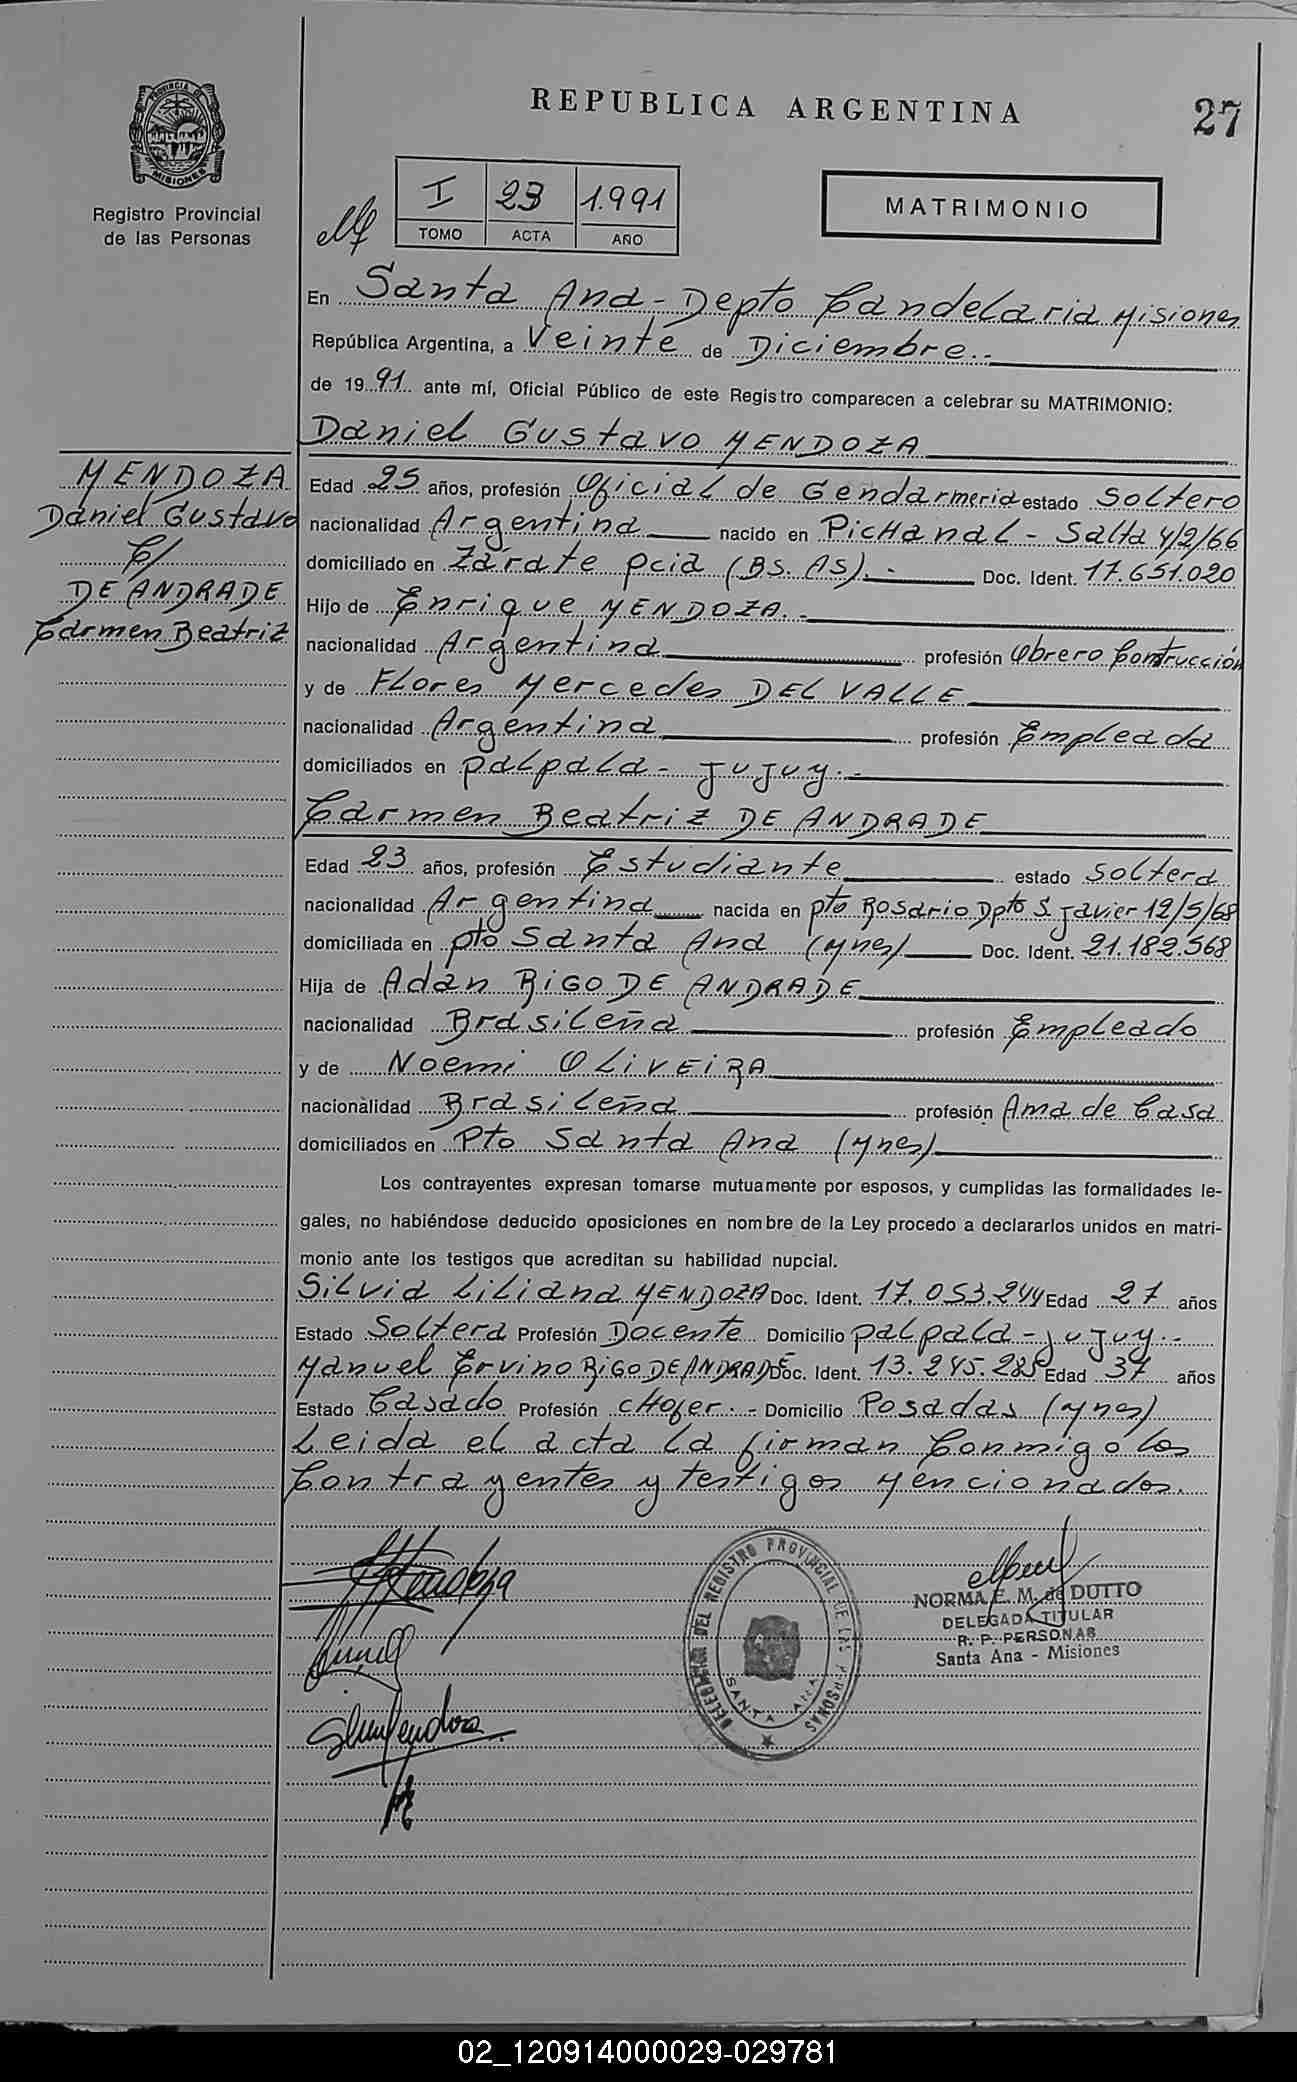 REPUBLICA ARGENTINA
27
PROVINCIA DE MISIONES
Registro Provincial
de las Personas
I 23 1.991
TOMO ACTA AÑO
MATRIMONIO
En Santa Ana - Depto Candelaria Misiones
República Argentina, a Veinte de Diciembre.-
de 1991 ante mí, Oficial Público de este Registro comparecen a celebrar su MATRIMONIO:
Daniel Gustavo MENDOZA
MENDOZA
Daniel Gustavo
C/
DE ANDRADE
Carmen Beatriz
Edad 25 años, profesión Oficial de Gendarmeria estado Soltero
nacionalidad Argentina nacido en PicHanaL - Salta 4/2/66
domiciliado en Zárate pcia (BS. AS).- Doc. Ident. 17.651.020
Hijo de Enrique MENDOZA.-
nacionalidad Argentina profesión Obrero Contrucción
y de FLores Mercedes DEL VALLE
nacionalidad Argentina profesión Empleada
domiciliados en palpala - Jujuy.-
Carmen Beatriz DE ANDRADE
Edad 23 años, profesión Estudiante estado Soltera
nacionalidad Argentina nacida en pto Rosario Dpto S. Javier 12/5/68
domiciliada en pto Santa Ana (Mnes) Doc. Ident. 21.182.568
Hija de Adán RiGO DE ANDRADE
nacionalidad Brasileña profesión Empleado
y de Noemi OLiVEiRA
nacionalidad Brasileña profesión Ama de Casa
domiciliados en Pto Santa Ana (Mnes)
Los contrayentes expresan tomarse mutuamente por esposos, y cumplidas las formalidades le-
gales, no habiéndose deducido oposiciones en nombre de la Ley procedo a declararlos unidos en matri-
monio ante los testigos que acreditan su habilidad nupcial.
Silvia Liliana MENDOZA Doc. Ident. 17.053.244 Edad 27 años
Estado Soltera Profesión Docente Domicilio palpala - Jujuy.-
Manuel Ervino RiGO DE ANDRADE Doc. Ident. 13.245.285 Edad 37 años
Estado Casado Profesión cHofer.- Domicilio Posadas (Mnes)
Leida el acta la firman Conmigo los
Contrayentes y testigos Mencionados.
Mendoza
DELEGACION DEL REGISTRO PROVINCIAL DE LAS PERSONAS
SANTA ANA
NORMA E. M. de DUTTO
DELEGADA TITULAR
R. P. PERSONAS
Santa Ana - Misiones
SLMendoza
02_120914000029-029781